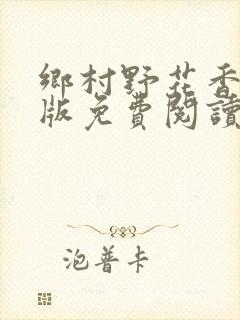 鄉村野花香
版免費閱讀
泡普卡